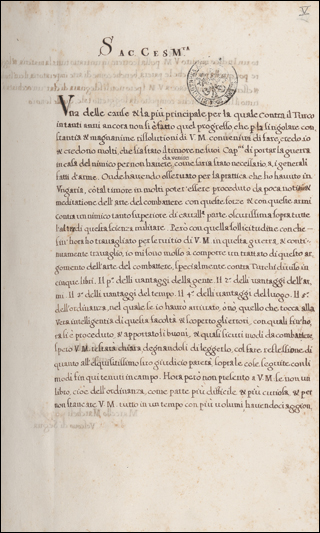 V
SAC. CES. M.ta
Vna delle cause & la più principale per la quale contra il Turco
in tanti anni ancora non si è fatto quel progresso che p la singolare con
stantia & magnanime rissolutioni di V. M. conveniva di fare, credo io
& credono molti, che sia stato il timore ne' suoi Cap.ni di portar la guerra
in casa del nimico per non havere, come saria stato necessario, i generali
da venire
fatti d'arme. Onde havendo osservato per la pratica che ho havuto in
Vngaria, co tal timore in molti poter'essere proceduto da poca
meditatione dell'arte del combattere con queste forze & con queste armi
contra un nimico tanto superiore di cavall.a parte oscurissima sopra tutte
di questa scienza militare. Però con quella sollicitudine con che
sin'hora ho travagliato per servitio di V. M. in questa guerra, & conti-
nuamente travaglio, io mi sono messo a comporre un trattato di questo ar-
gomento dell'arte del combattere, specialmente contra Turchi diviso in
cinque libri. Il p.o delli vantaggi della gente. Il 2.o delli vantaggi dell'ar
mi. Il 3.o delli vantaggi del tempo. Il 4.o delli vantaggi del luogo. Il 5.o
dell'ordinanza, nel quale se io havrò arrivato, o nò quello che tocca alla
vera intelligentia di questa facoltà & scoperto gli errori, con quali sin'ho
ra si è proceduto & apportato li buoni, & quali sicuri modi da combattere,
spero V. M. resterà chiara degnandosi di leggerlo, col fare reflessione di
quanto all'esquisitissimo suo giudicio parerà, sopra le cose seguite con li
modi fin qui tenuti in campo. Hora però non presento a V. M. se non un
libro, cioè dell'ordinanza, come parte più difficile & più curiosa, & per
non stancare V. M. tutto in un tempo con più volumi havendoci aggion